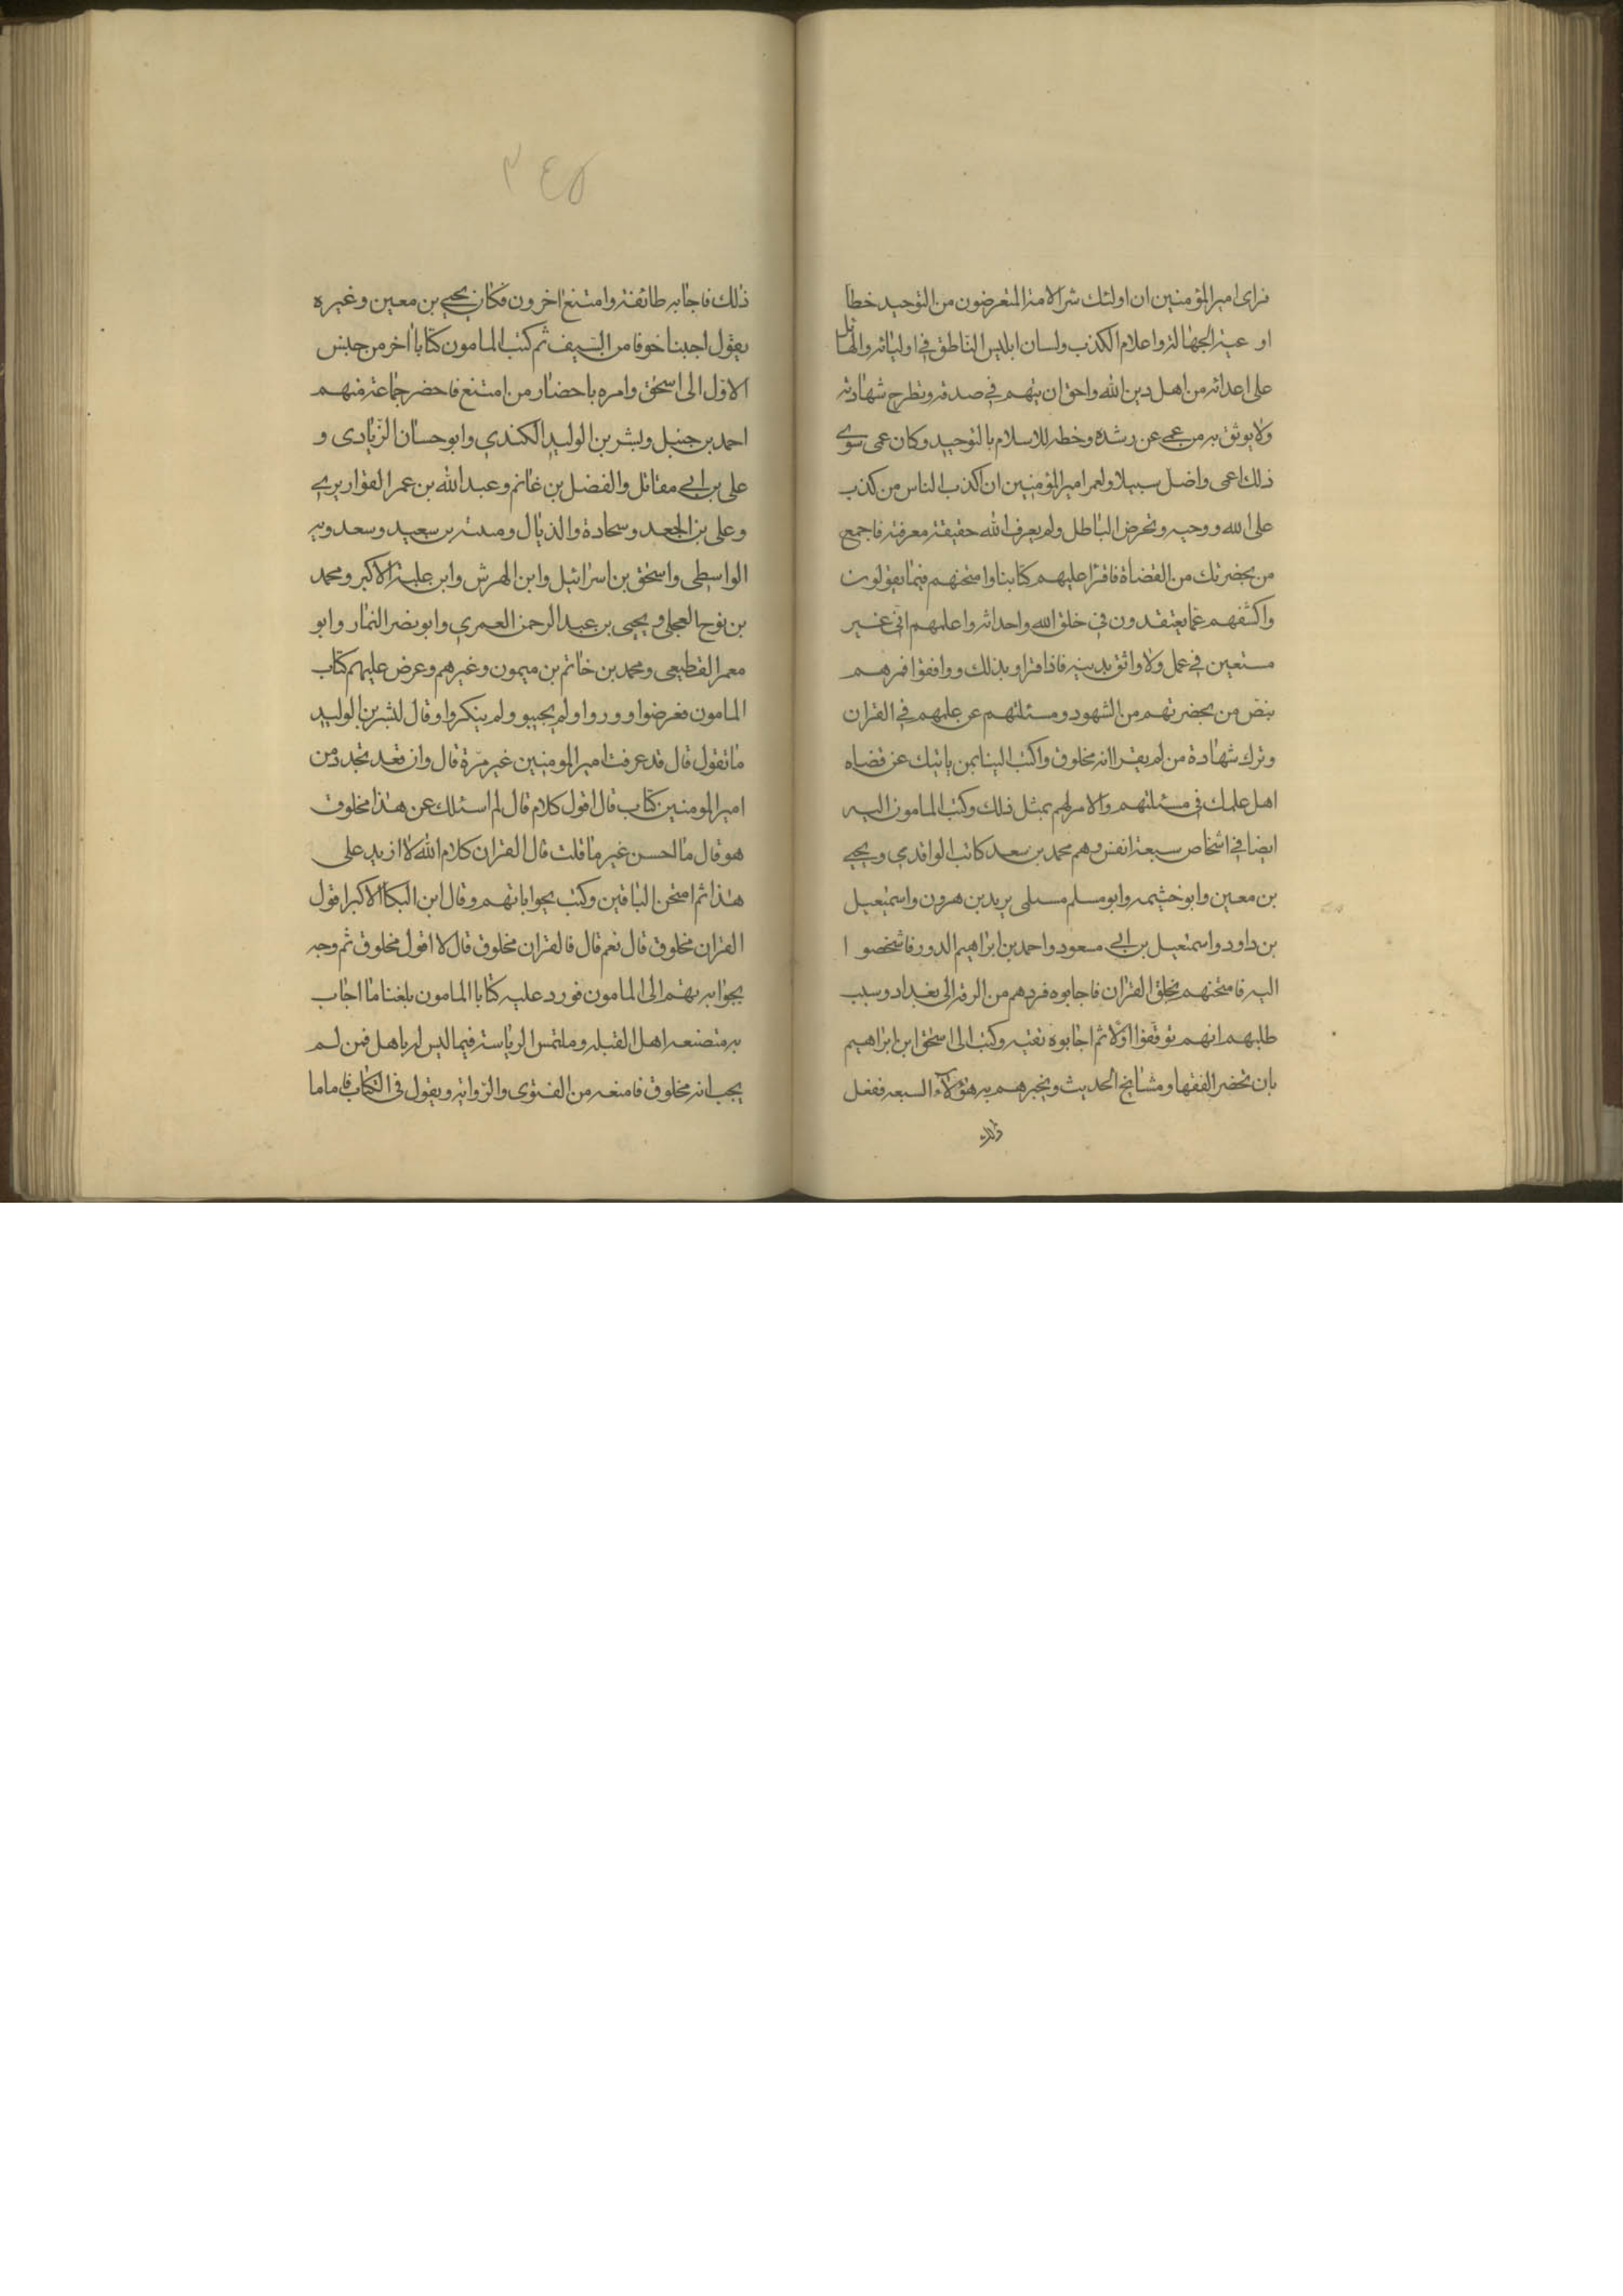 فراى امير المؤمنين ان اولئك شر الامة المتعرضون من التوحيد خطا
او عية الجهالة واعلام الكذب ولسان ابليس الناطق في اوليائه والهائل
على اعدائه من اهل دين الله واحق ان يتهم في صدقه وتطرح شهادته
ولا يوثق به من عمى عن رشده وخطه للاسلام بالتوحيد وكان عمى سوى
ذلك اعمى واضل سبيلا ولعمر امير المؤمنين ان اكذب الناس من كذب
على الله ووحيه وتخرض الباطل ولم يعرف الله حقيقة معرفته فاجمع
من بحضرتك من القضاة فاقرا عليهم كتابنا وامتحنهم فيما يقولون
واكشفهم عما يعتقدون في خلق الله واحداثه واعلمهم اني غير
مستعين في عمل ولا واثق بدينه فاذا اقراو بذلك ووافقوا فمرهم
بنص من بحضرتهم من الشهود ومسئلتهم عن علمهم في القران
وترك شهادة من لم يقر انه مخلوق واكتب الينا بمن ياتيك عن قضاه
اهل علمك في مسئلتهم والامر لهم بمثل ذلك وكتب المامون اليه
ايضا في اشخاص سبعة انفس وهم محمد بن سعد كاتب الواقدي ويحيى
بن معين وابو خثيمه وابو مسلم مسلى يزيد بن هرون واسمعيل
بن داود واسمعيل بن ابي مسعود واحمد بن ابراهيم الدور فاشخصوا
اليه فامتحنهم بخلق القران فاجابوه فردهم من الرقه الى بغداد وسبب
طلبهم انهم توقفوا اولا ثم اجابوه تقيه وكتب الى اسحق ابن ابراهيم
بان تحضر الفقها ومشايخ الحديث ويخبرهم به هؤلاء السبعه ففعل
ذلك
٣٤٥
ذلك فاجابه طائفة وامتنع اخرون فكان يحيى بن معين وغيره
يقول اجبنا خوفا من السيف ثم كتب المامون كتابا اخر من جنس
الاول الى اسحق وامره باحضار من امتنع فاحضر جماعة منهم
احمد بن حنبل وبشر بن الوليد الكندي وابو حسان الزيادى و
على بن ابي مقاتل والفضل بن غانم وعبد الله بن عمر القواريري
وعلى بن الجعد وسحادة والذيال بن سعيد وسعدويه
الواسطى واسحق بن اسرائيل وابن الهرش وابن علية الاكبر ومحمد
بن نوح العجلى ويحيى بن عبد الرحمن العمري وابو نصر التمار وابو
معمر القطيعى ومحمد بن خاتم بن ميمون وغيرهم وعرض عليهم كتاب
المامون فعرضوا ووروا ولم يجيبو ولم ينكروا وقال لبشر بن الوليد
ما تقول قال قد عرفت امير المومنين غير مرة قال وان فقد تجدد من
امير المومنين كتاب قال اقول كلام قال لم اسئلك عن هذا مخلوق
هو قال ما الحسن غير ما قلت قال القران كلام الله لا ازيد على
هذا ثم امتحن الباقين وكتب بجواباتهم وقال ابن البكا الاكبر اقول
القران مخلوق قال نعم قال فالقران مخلوق قال لا اقول مخلوق ثم وجه
بجوابه بهم الى المامون فورد عليه كتابا المامون بلغنا ما اجاب
به متصنعه اهل القبله وملتمس الرياسة فيما ليس له باهل فمن لم
يجب انه مخلوق فامنعه من الفتوى والروايه ويقول في الكتاب فاما ما